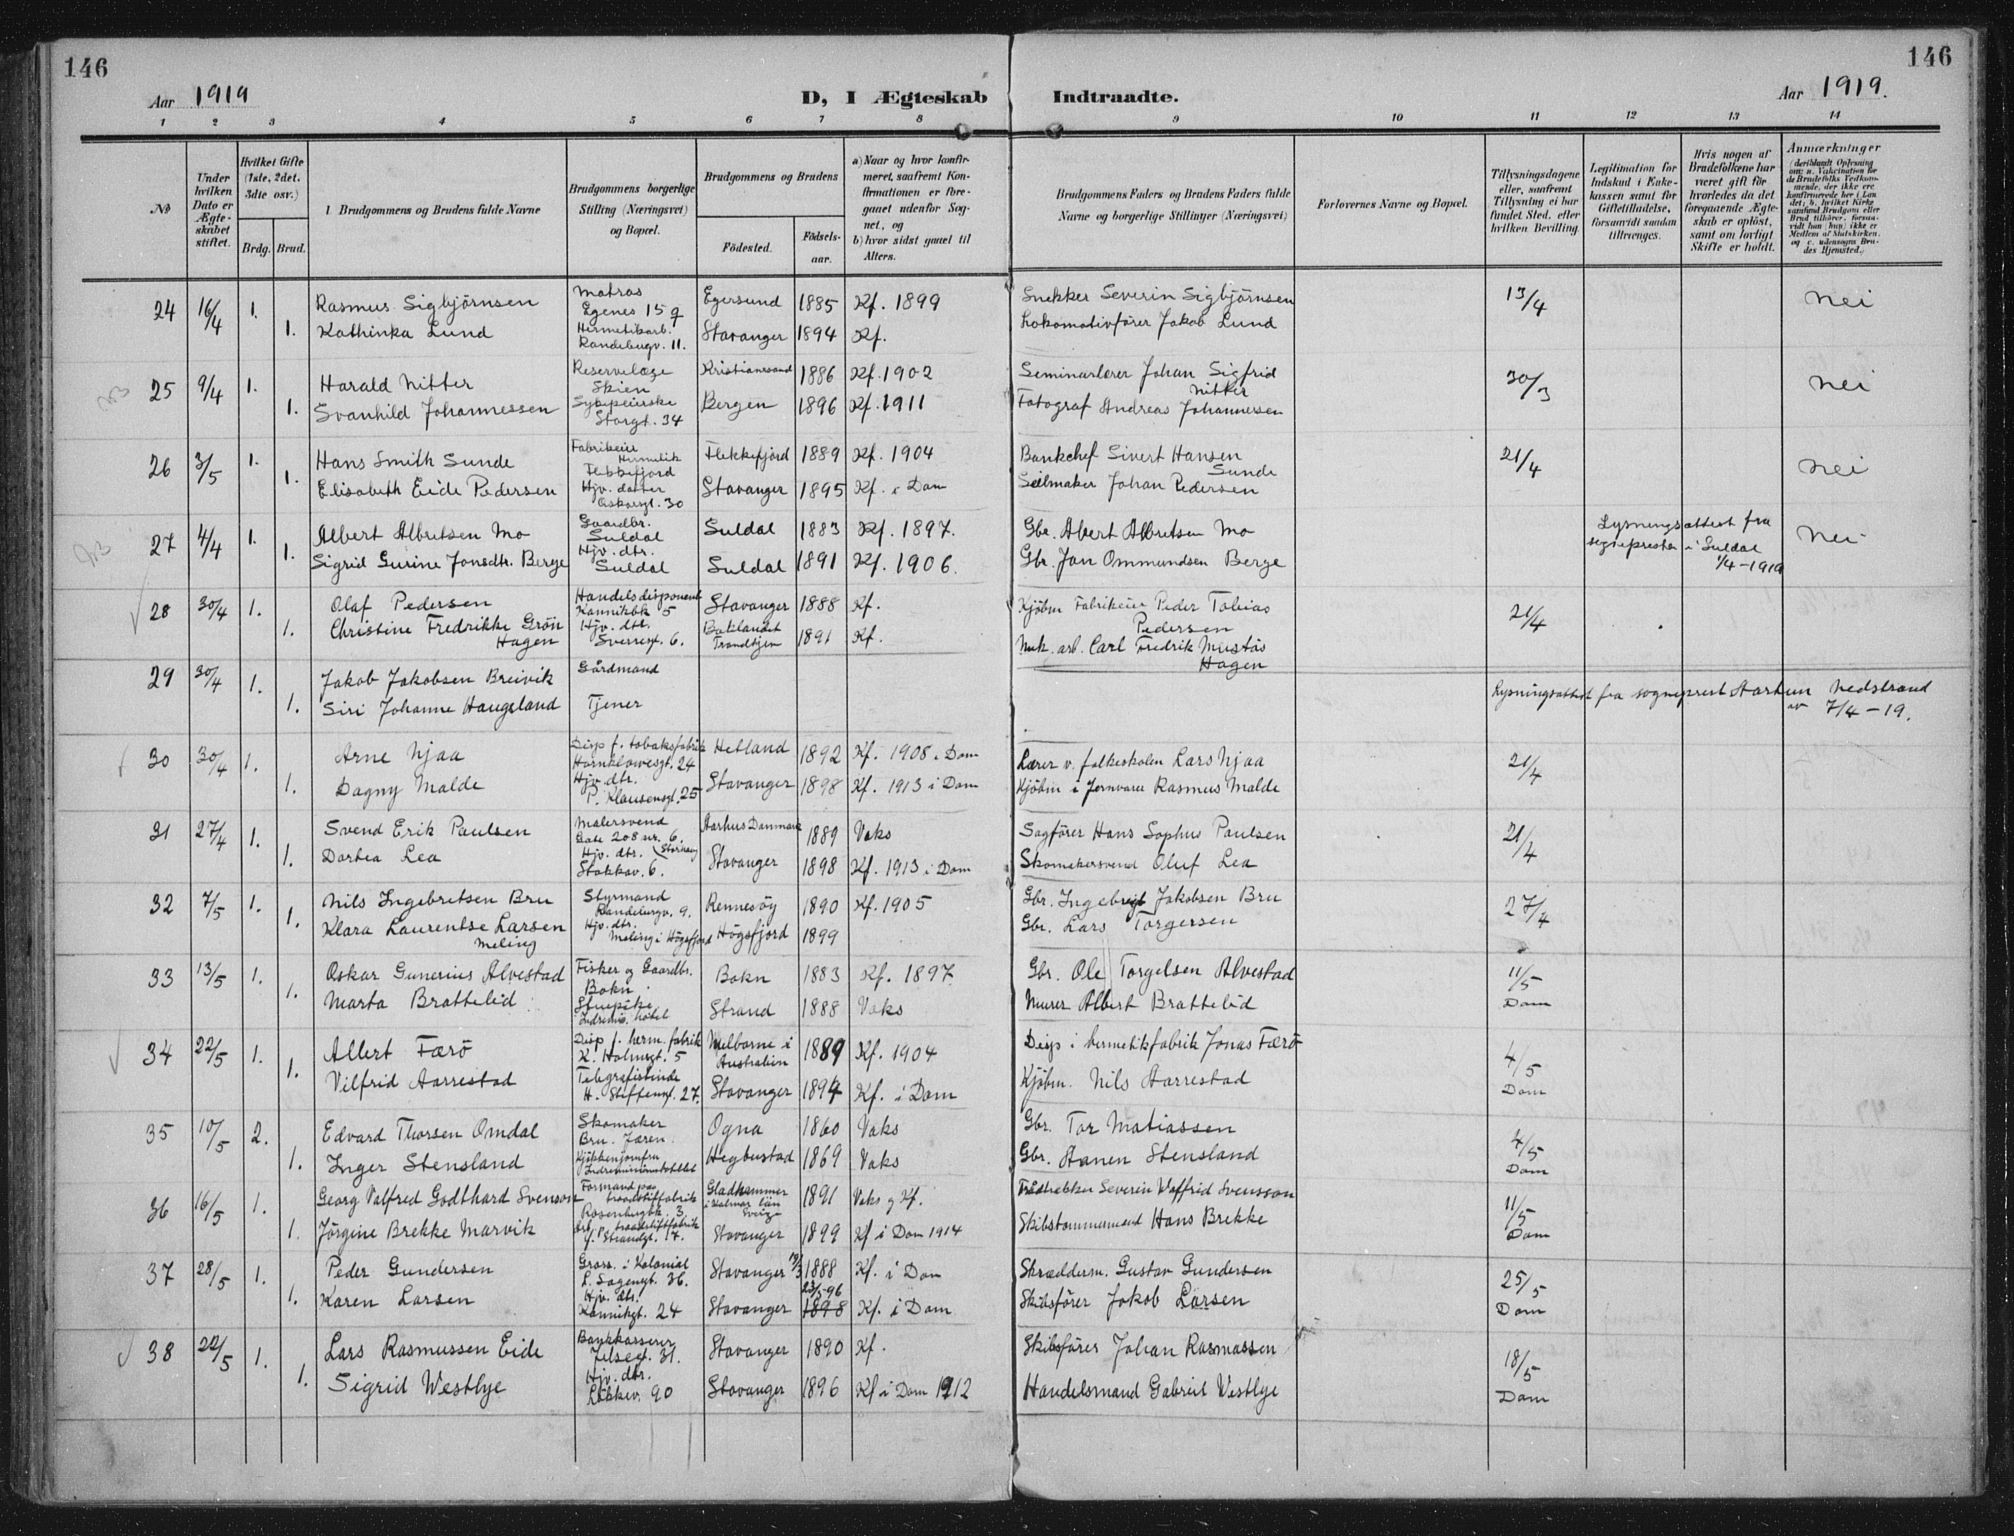 146
146
Aar 1919
D, I Ægteskab Indtraadte.
Aar 1919.
1 2 3 4 5 6 7 8 9 10 11 12 13 14
№
Under hvilken Dato er Ægteskabet stiftet.
Hvilket Gifte (1ste, 2det. 3die osv.)
Brdg. Brud.
Brudgommens og Brudens fulde Navne
Brudgommens borgerlige Stilling (Næringsvei) og Bopæl.
Brudgommens og Brudens
Fødested.
Fødsels-aar.
a) Naar og hvor konfirmeret, saafremt Konfirmationen er foregaaet udenfor Sognet, og
b) hvor sidst gaael til Alters.
Brudgommens Faders og Brudens Faders fulde Navne og borgerlige Stillinger (Næringsvei)
Forlovernes Navne og Bopæl.
Tillysningsdagene eller, saafremt Tillysning ei har fundet Sted, efter hvilken Bevilling.
Legitimation for Indskud i Enkekassen samt for Giftetilladelse, forsaavidt saadan tiltrænges.
Hvis nogen af Brudefolkene har været gift før, hvorledes da det foregaaende Ægteskab er opløst, samt om lovligt Skifte er holdt.
Anmærkninger
24 16/4 1. Rasmus Sigbjörnsen Matros Egenes 159 Egersund 1885 Kf. 1899 Snekker Severin Sigbjörnsen 13/4 Nei
1. Kathinka Lund Hermetikarb. Randebugv. 11. Stavanger 1894 Kf. Lokomotivförer Jakob Lund
25 9/4 1. Harald Nitter Reservelæge Skien Kristianssand 1886 Kf. 1902 Seminarlærer Johan Sigfrid Nitter 30/3 Nei
1. Svanhild Johannessen Storgt. 34 Bergen 1896 Kf. 1911 Fotograf Andreas Johannessen
26 3/5 1. Hans Smith Sunde Fabrikeier Hermetik Flekkefjord Flekkefjord 1889 Kf. 1904 Bankchef Sivert Hansen Sunde 21/4 Nei
1. Elisabeth Eide Pedersen Hjv. datter Oskarsgt. 30 Stavanger 1895 Kf. i Dom Seilmaker Johan Pedersen
27 4/4 1. Albert Albretsen Mo Gaardbr. Suldal Suldal 1883 Kf. 1897. Gbr. Albert Albretsen Mo Lysningsattest fra sognepresten i Suldal 1/4-1919 Nei
1. Sigrid Gurine Jonsdtr. Berge Hjv. dtr. Suldal Suldal 1891 Kf. 1906. Gbr. Jon Ommundsen Berge
28 30/4 1. Olaf Pedersen Handelsdisponent Kannikbk 5 Stavanger 1888 Kf. Kjöbm Fabrikeier Peder Tobias Pedersen 21/4
1. Christine Fredrikke Grön Hagen Hjv. dtr. Sverregt. 6. Baklandet Trondhjem 1891 Kf. Mek. arb. Carl Fredrik Mustös Hagen
29 30/4 1. Jakob Jakobsen Breivik Gårdmand Lysningsattest fra sogneprest Aarhun Nedstrand av 7/4-19.
1. Siri Johanne Haugeland Tjener
30 30/4 1. Arne Njaa Disp f. tobaksfabrik Harniklowesgt. 24 Hetland 1892 Kf. 1908 i Dom Lærer v. folkeskolen Lars Njaa 21/4
1. Dagny Malde Hjv. dtr. P. Klausensgt. 25 Stavanger 1898 Kf. 1913 i Dom Kjöbm i Jernvarer Rasmus Malde
31 27/4 1. Svend Erik Paulsen Malersvend Gate 208 nr. 6. Storhaug Aarhus Danmark 1889 Vaks Sagförer Hans Sophus Paulsen 21/4
1. Dortea Lea Hjv. dtr. Stokkav. 6. Stavanger 1898 Kf. 1913 i Dom Skomakersvend Oluf Lea
32 7/5 1. Nils Ingebretsen Bru Styrmand Randebergv. 9. Rennesöy 1890 Kf. 1905 Gbr. Ingebrigt Jakobsen Bru 27/4
1. Klara Laurentse Larsen Meling Hjv. dtr. Meling i Högsfjord Högsfjord 1899 Gbr. Lars Torgersen
33 13/5 1. Oskar Gunerius Alvestad Fisker og Gaardbr. Bokn Bokn 1883 Kf. 1897. Gbr. Ole Torgelsen Alvestad 11/5 Dom
1. Marta Brattelid Stuepike Indremis. hotel Strand 1888 Vaks Murer Albert Brattelid
34 22/5 1. Albert Færö Disp f. herm. fabrik K. Holmsgt. 5 Melborne i Australien 1889 Kf. 1904 Disp i hermetikfabrik Jonas Færö 4/5 Dom
1. Vilfrid Aarrestad Telegrafistinde H. Steffensgt. 27. Stavanger 1894 Kf. i Dom Kjöbm. Nils Aarrestad
35 10/5 2. Edvard Thorsen Omdal Skomaker Bru. Jæren Ogna 1860 Vaks Gbr. Tor Matiassen 4/5 Dom
1. Inger Stensland Kjökkenjomfru Indremissionshotellet Hegbustad 1869 Vaks Gbr. Aanen Stensland
36 16/5 1. Georg Valfred Godthard Svensson Formand paa traadstiftfabrik Rosenbugbk. 3. Gladhammer i Kalmar län Sverige 1891 Vaks og Kf. Trådtrekker Severin Valfrid Svensson 11/5 Dom
1. Jörgine Brekke Marvik Arb. traadstiftfabrik Strandgt. 17. Stavanger 1899 Kf i Dom 1914 Skibstømmermand Hans Brekke
37 28/5 1. Peder Gundersen Gross. i Kolonial L. Sagengt. 36. Stavanger 19/3 1888 Kf. i Dom Skrædderm. Gustav Gundersen 25/5 Dom
1. Karen Larsen Hjv. dtr. Kannikgt. 24 Stavanger 23/5-96 1898 Kf. i Dom Skibsförer Jakob Larsen
38 22/5 1. Lars Rasmussen Eide Bankkasserer Jelsegt. 31. Stavanger 1890 Kf. Skibsförer Johan Rasmussen 18/5 Dom
1. Sigrid Westbye Hjv. dtr. Løkkev. 90 Stavanger 1896 Kf i Dom 1912 Handelsmand Gabriel Westbye